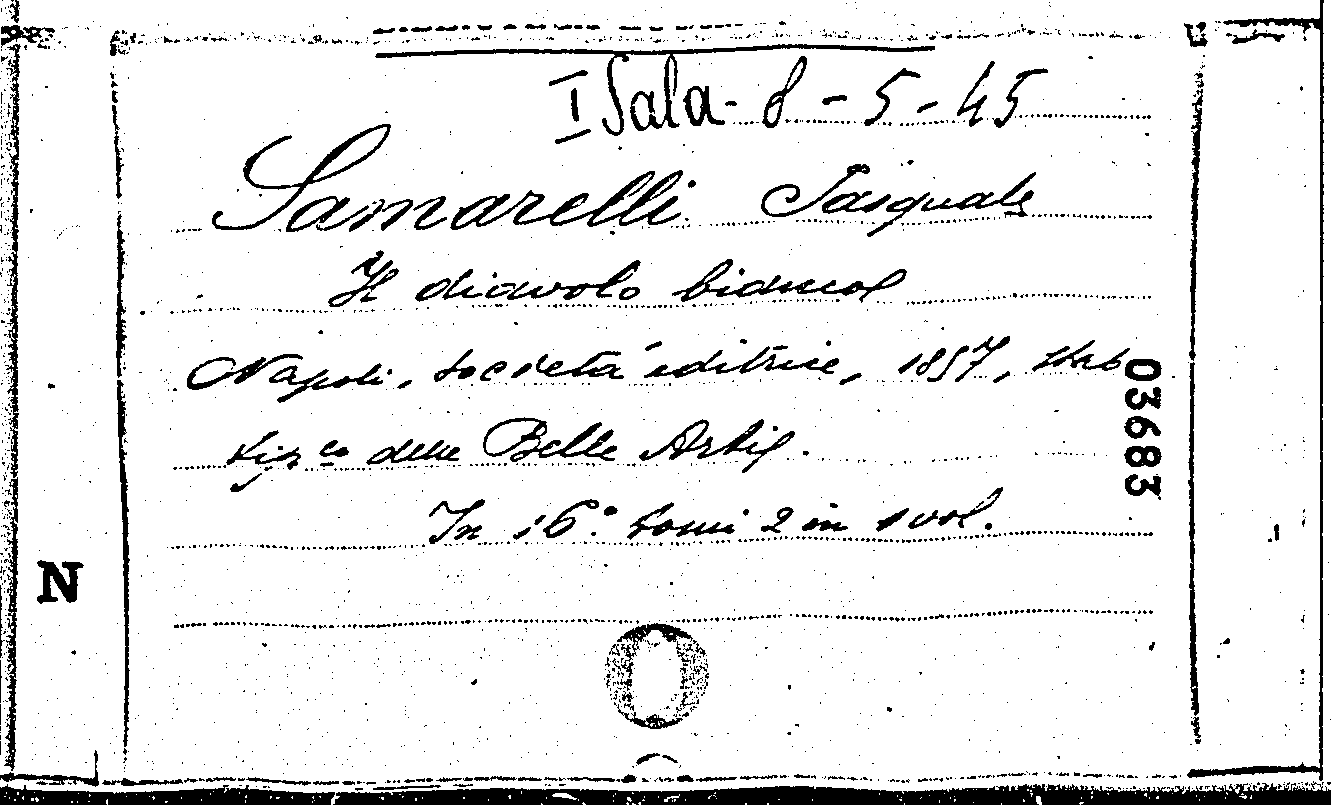 I Sala - 8 - 5 - 45
Samarelli Pasquale
Il diavolo
Napoli, Società editrice, 1857, Stab
tip.co delle Belle Arti
In 16.° tomi 2 in 1 vol.
03683
N